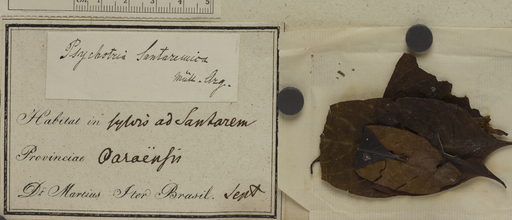 Psychotria Santaremica
Müll. Arg.
Habitat in sylvis ad Santarem
Provinciae Paraënsis
Dr. Martius Iter Brasil. Sept